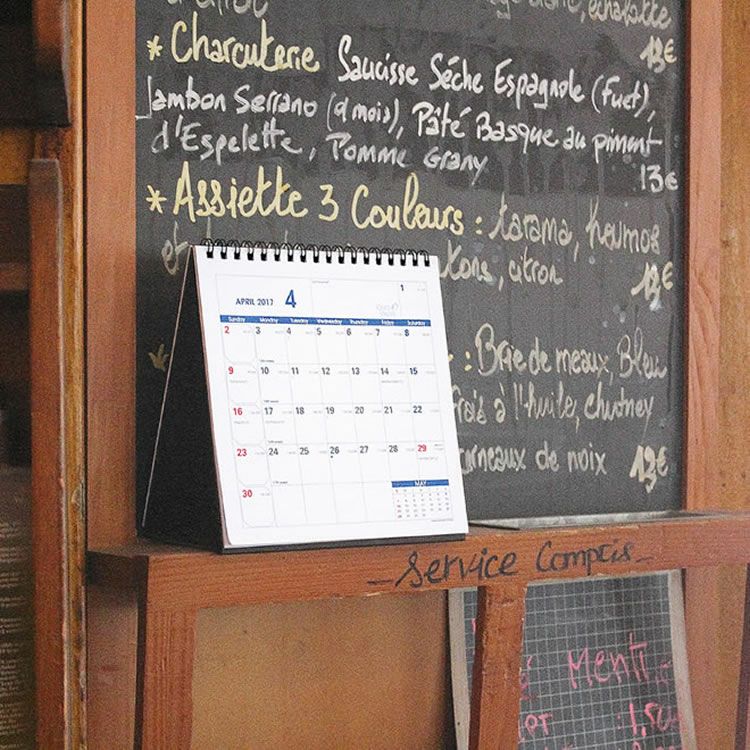 * Charcuterie Saucisse Séche Espagnole (Fuet),
Jambon Serrano (9 mois), Pâté Basque au piment
d'Espelette, Pomme Grany
13€
13€
* Assiette 3 Couleurs : tarama, houmos
citron
13€
: Brie de meaux, Bleu
frais à l'huile, chutney
cerneaux de noix
13€
APRIL 2017 4
1
Sunday Monday Tuesday Wednesday Thursday Friday Saturday
2 3 4 5 6 7 8
9 10 11 12 13 14 15
16 17 18 19 20 21 22
23 24 25 26 27 28 29
30
MAY
_Service Compris_
Menti
1,50